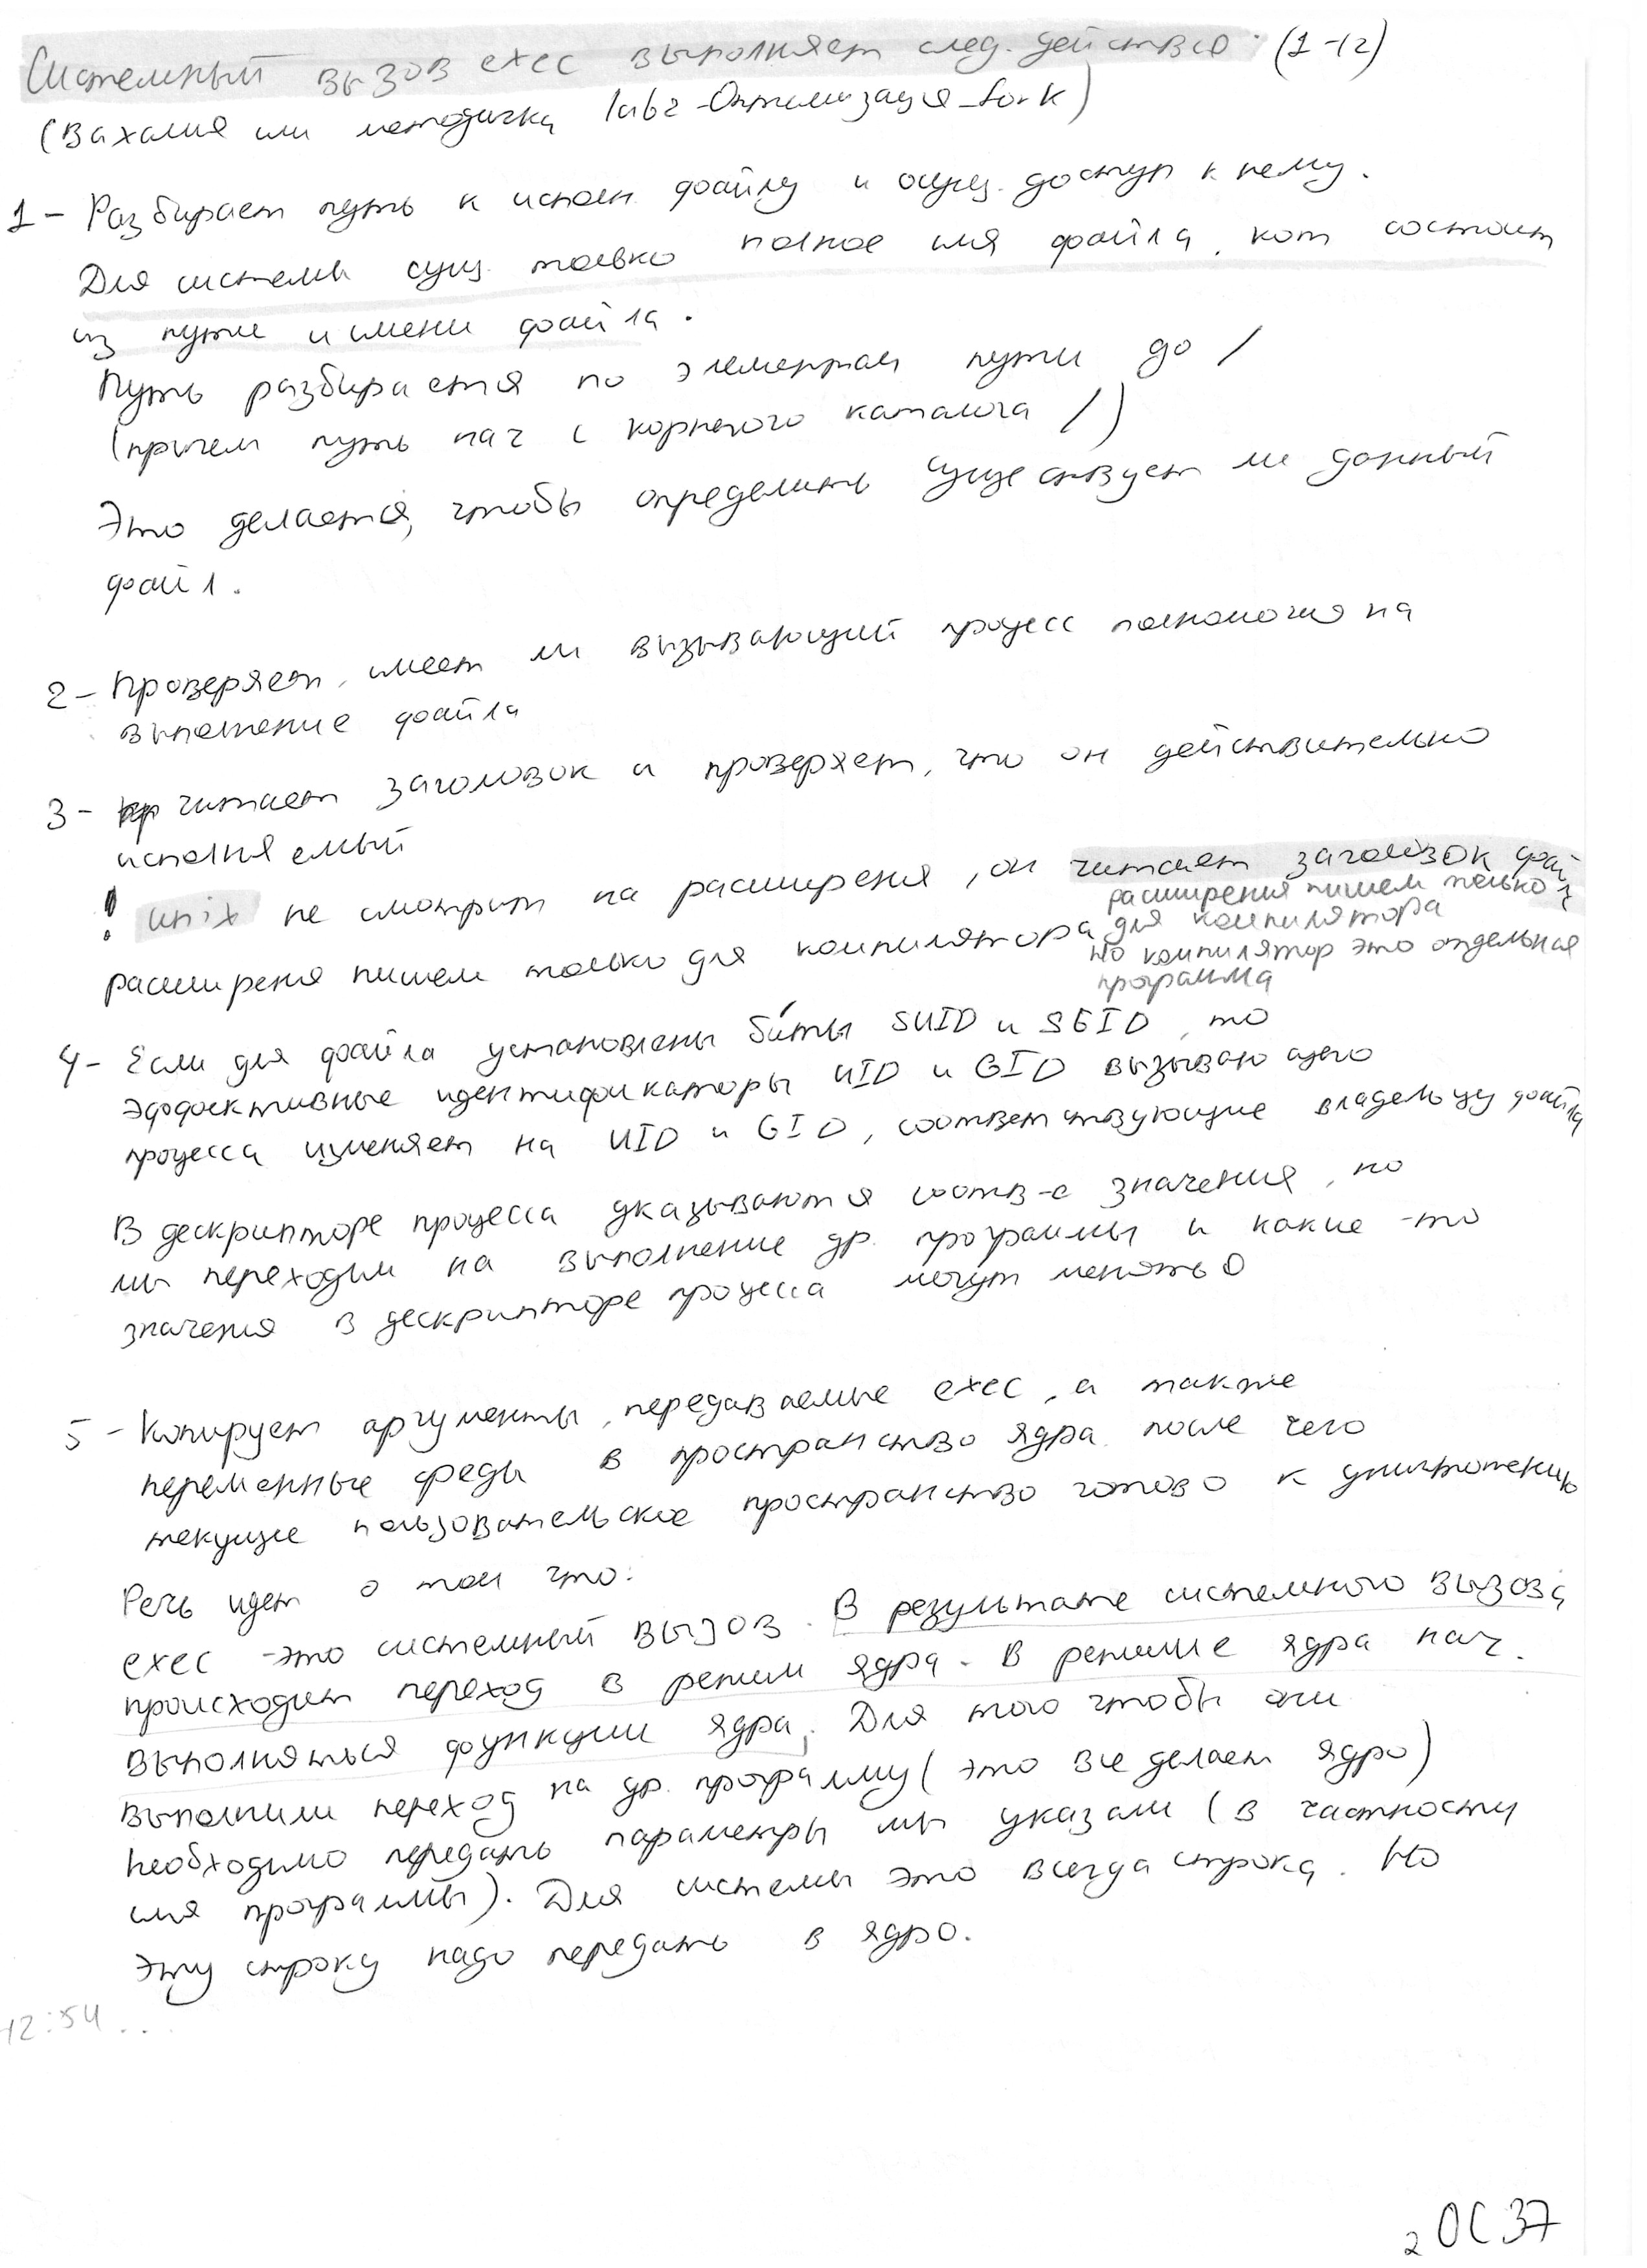 Системный вызов exec выполняет след. действия: (1-12)
(Вахалия или методичка lab2-Оптимизация_fork)
1 - Разбирает путь к испол. файлу и осущ. доступ к нему.
Для системы сущ. только полное имя файла, кот состоит
из пути и имени файла.
Путь разбирается по элементам пути до /
(причем путь нач с корневого каталога /)
Это делается, чтобы определить существует ли данный
файл.
2 - Проверяет, имеет ли вызывающий процесс полномочия на
выполнение файла
3 - читает заголовок и проверяет, что он действительно
исполняемый
! unix не смотрит на расширения, он читает заголовок файла
расширения пишем только для компилятора
расширения пишем только
для компилятора
Но компилятор это отдельная
программа
4 - Если для файла установлены би́ты SUID и SGID, то
эффективные идентификаторы UID и GID вызывающего
процесса изменяет на UID и GID, соответствующие владельцу файла
В дескрипторе процесса указываются соотв-е значения, но
мы переходим на выполнение др. программы и какие-то
значения в дескрипторе процесса могут меняться
5 - Копирует аргументы, передаваемые exec, а также
переменные среды в пространство ядра, после чего
текущее пользовательское пространство готово к уничтожению
Речь идет о том что:
exec - это системный вызов. В результате системного вызова
происходит переход в режим ядра. В режиме ядра нач.
выполняться функции ядра. Для того чтобы они
выполнили переход на др. программу (это все делает ядро)
необходимо передать параметры мы указали (в частности
имя программы). Для системы это всегда строка. Но
эту строку надо передать в ядро.
12:54 ...
2 ОС 37